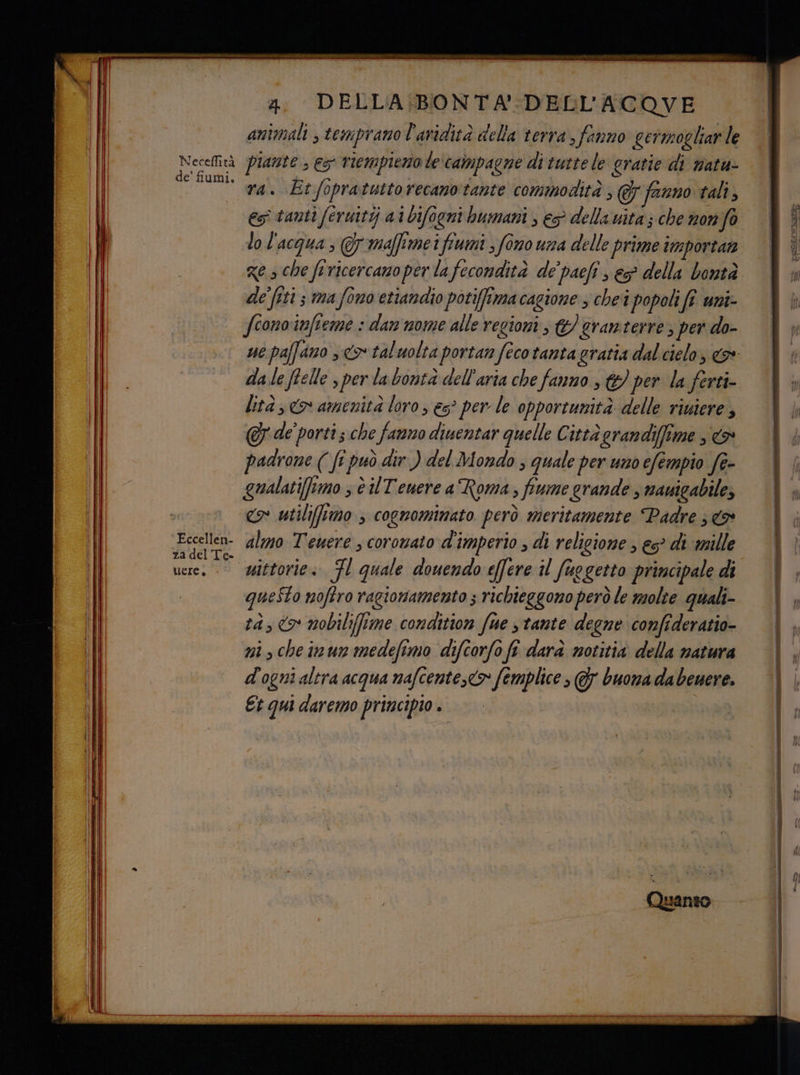 4 DELLA BONTA' DELL'ACQVE
animali, temprano l'aridità della terra, fanno germogliar le
Necessità
de' fiumi.
piante, & riempieno le campagne di tutte le gratie di natu-
ra. Et sopratutto recano tante commodità, & fanno tali,
& tanti seruitij a i bisogni humani, & della uita; che non so
lo l'acqua, & massime i fiumi, sono una delle prime importan
ze, che si ricercano per la fecondità de' paesi, & della bontà
de' siti; ma sono etiandio potissima cagione, che i popoli si uni-
scono insieme: dan nome alle regioni, & gran terre, per do-
ue passano, & tal uolta portan seco tanta gratia dal cielo, &
da le stelle, per la bontà dell'aria che fanno, & per la ferti-
lità, & amenità loro, & per le opportunità delle riuiere,
& de' porti; che fanno diuentar quelle Città grandissime, &
padrone (si può dir) del Mondo, quale per uno esempio se-
gnalatissimo, è il Teuere a Roma, fiume grande, nauigabile,
& utilissimo, cognominato però meritamente Padre, &
Eccellen-
za del Te-
uere.
almo Teuere, coronato d'imperio, di religione, & di mille
uittorie. Il quale douendo essere il suggetto principale di
questo nostro ragionamento; richieggono però le molte quali-
tà, & nobilissime condition sue, tante degne consideratio-
ni, che in un medesimo discorso si darà notitia della natura
d'ogni altra acqua nascente, & semplice, & buona da beuere.
Et qui daremo principio.
Quanto